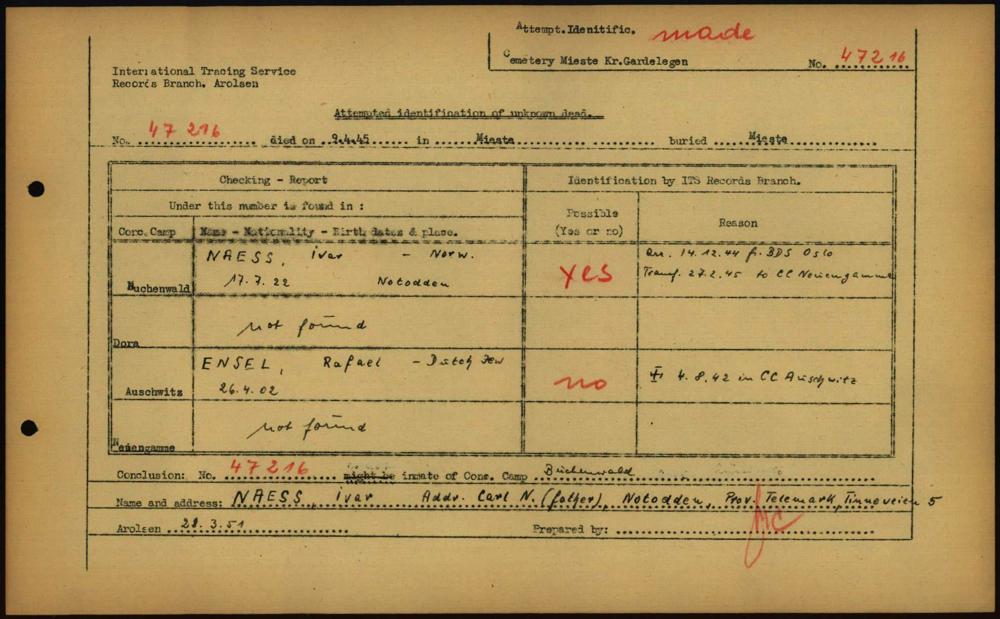 Attempt.Idenitific. made
Cemetery Mieste Kr.Gardelegen No. 47216
International Tracing Service
Records Branch, Arolsen
Attempted identification of unknown dead.
No. 47 216 died on 9.4.45 in Mieste buried Mieste
Checking - Report Identification by ITS Records Branch.
Under this number is found in :
Possible (Yes or no) Reason
Conc.Camp Name - Nationality - Birth dates & place.
NAESS, Ivar - Norw. Arr. 14.12.44 fr. BDS Oslo
Buchenwald 17.7.22 Notodden yes Transf. 27.2.45 to CC Neuengamme
Dora not found
ENSEL, Rafael - Dutch Jew
Auschwitz 26.4.02 no 4.8.42 in CC Auschwitz
Neuengamme not found
Conclusion: No. 47216 might be inmate of Conc. Camp Buchenwald
Name and address: NAESS, Ivar Addr. Carl N. (father), Notodden, Prov. Telemark, Tinneveien 5
Arolsen 28.3.51 Prepared by: